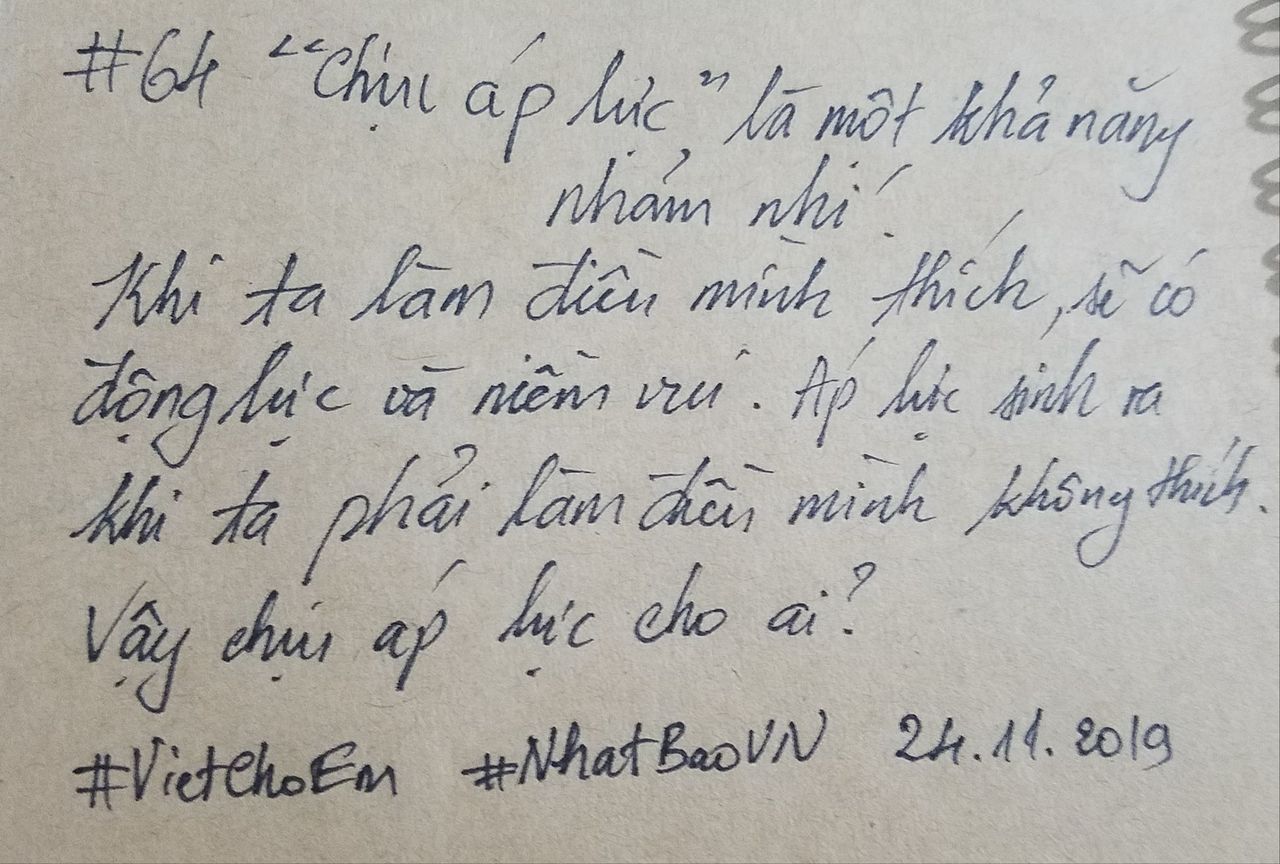 #64 “Chịu áp lực” là một khả năng
nhảm nhí.
Khi ta làm điều mình thích, sẽ có
động lực và niềm vui. Áp lực sinh ra
khi ta phải làm điều mình không thích.
Vậy chịu áp lực cho ai?
#VietChoEm #NhatBaoVN 24.11.2019